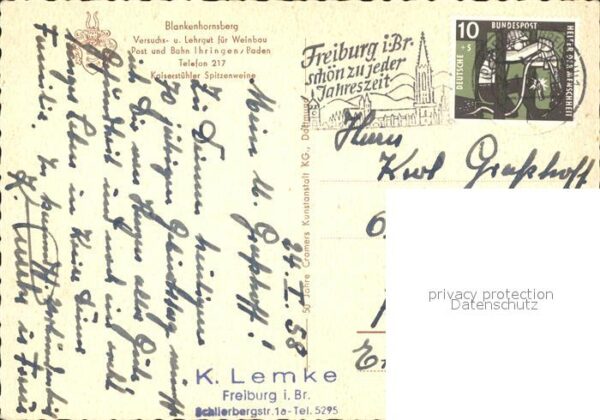 Blankenhornsberg
Versuchs- u. Lehrgut für Weinbau
Post und Bahn Ihringen/Baden
Telefon 217
Kaiserstühler Spitzenweine
Freiburg i. Br.
schön zu jeder
Jahreszeit
10
+5
DEUTSCHE BUNDESPOST
HELFER DER MENSCHHEIT
50 Jahre Cramers Kunstanstalt KG., Dortmund
Herrn
Karl Graßhoff
24. I. 58
Mein lb. Graßhoff!
Zu Deinem heutigen
70 jährigen Geburtstag
ich Dir von Herzen alles Gute
Gesundheit und noch ein
langes Leben im Kreise Deiner
Familie. In
K. Lemke
K. Lemke
Freiburg i. Br.
Schlierbergstr. 1a - Tel. 5295
privacy protection
Datenschutz